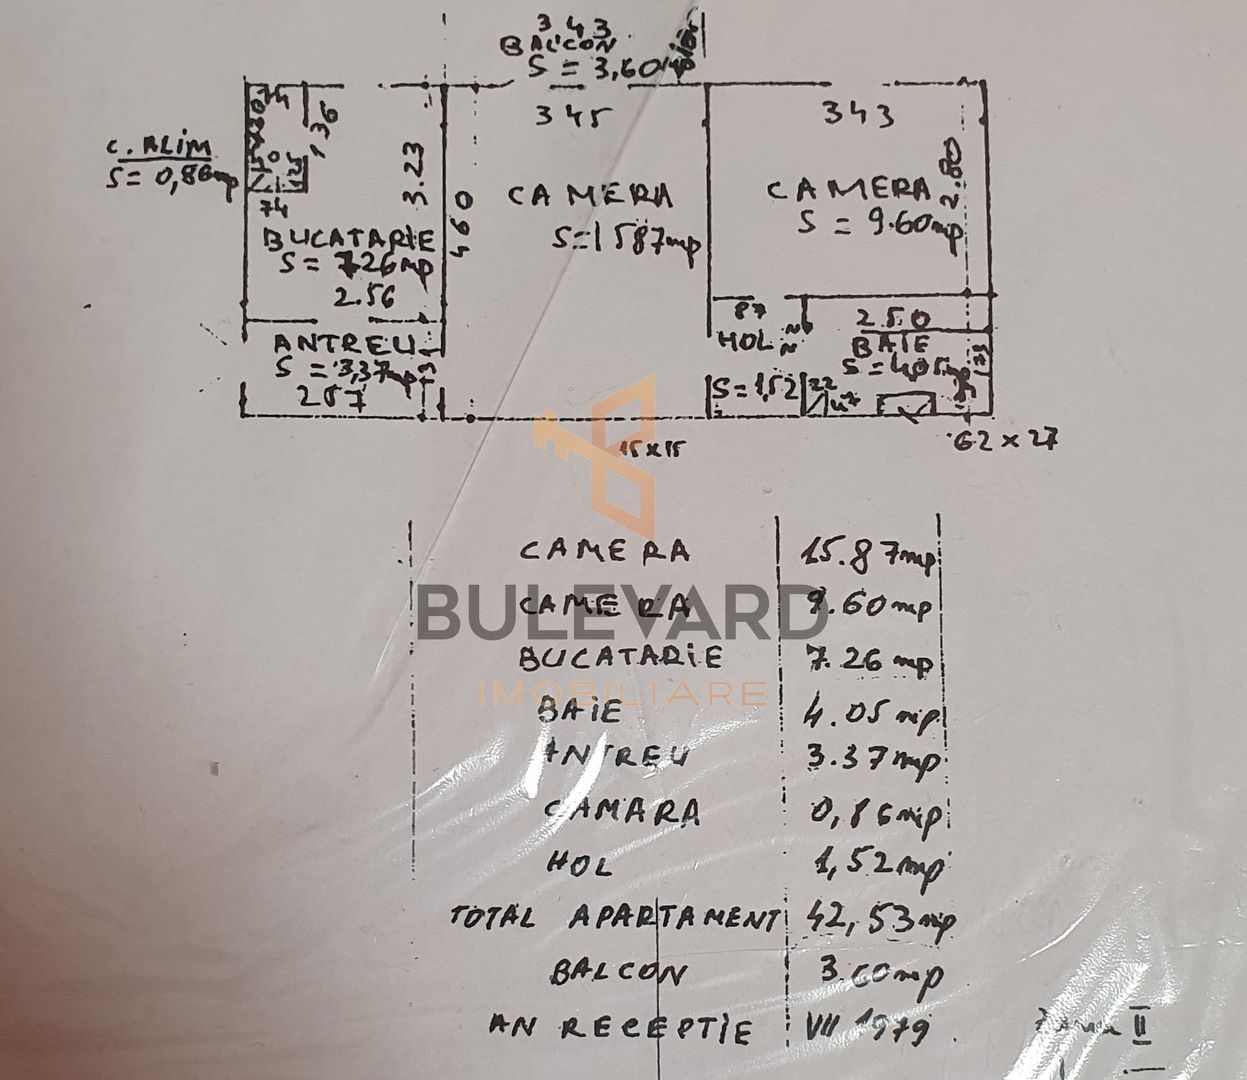 343
BALCON
S = 3,60mp
345
343
74
136
C. ALIM
S= 0,86mp
74
3.23
460
CAMERA
S=1587mp
CAMERA
S = 9.60mp
2.80
BUCATARIE
S= 7.26mp
2.56
ANTREU
S = 3,37mp
257
87
HOL
S=1,52
250
BAIE
S=4,05mp
22
47
62 x 27
15x15
CAMERA 15.87mp
CAMERA 9.60mp
BULEVARD
BUCATARIE 7.26 mp
IMOBILIARE
BAIE 4.05 mp
ANTREU 3.37mp
CAMARA 0,86mp
HOL 1,52mp
TOTAL APARTAMENT 42,53mp
BALCON 3.60mp
AN RECEPTIE VII 1979
II